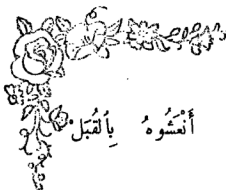 أَنْعَشُوهُ بِٱلْقُبَلْ